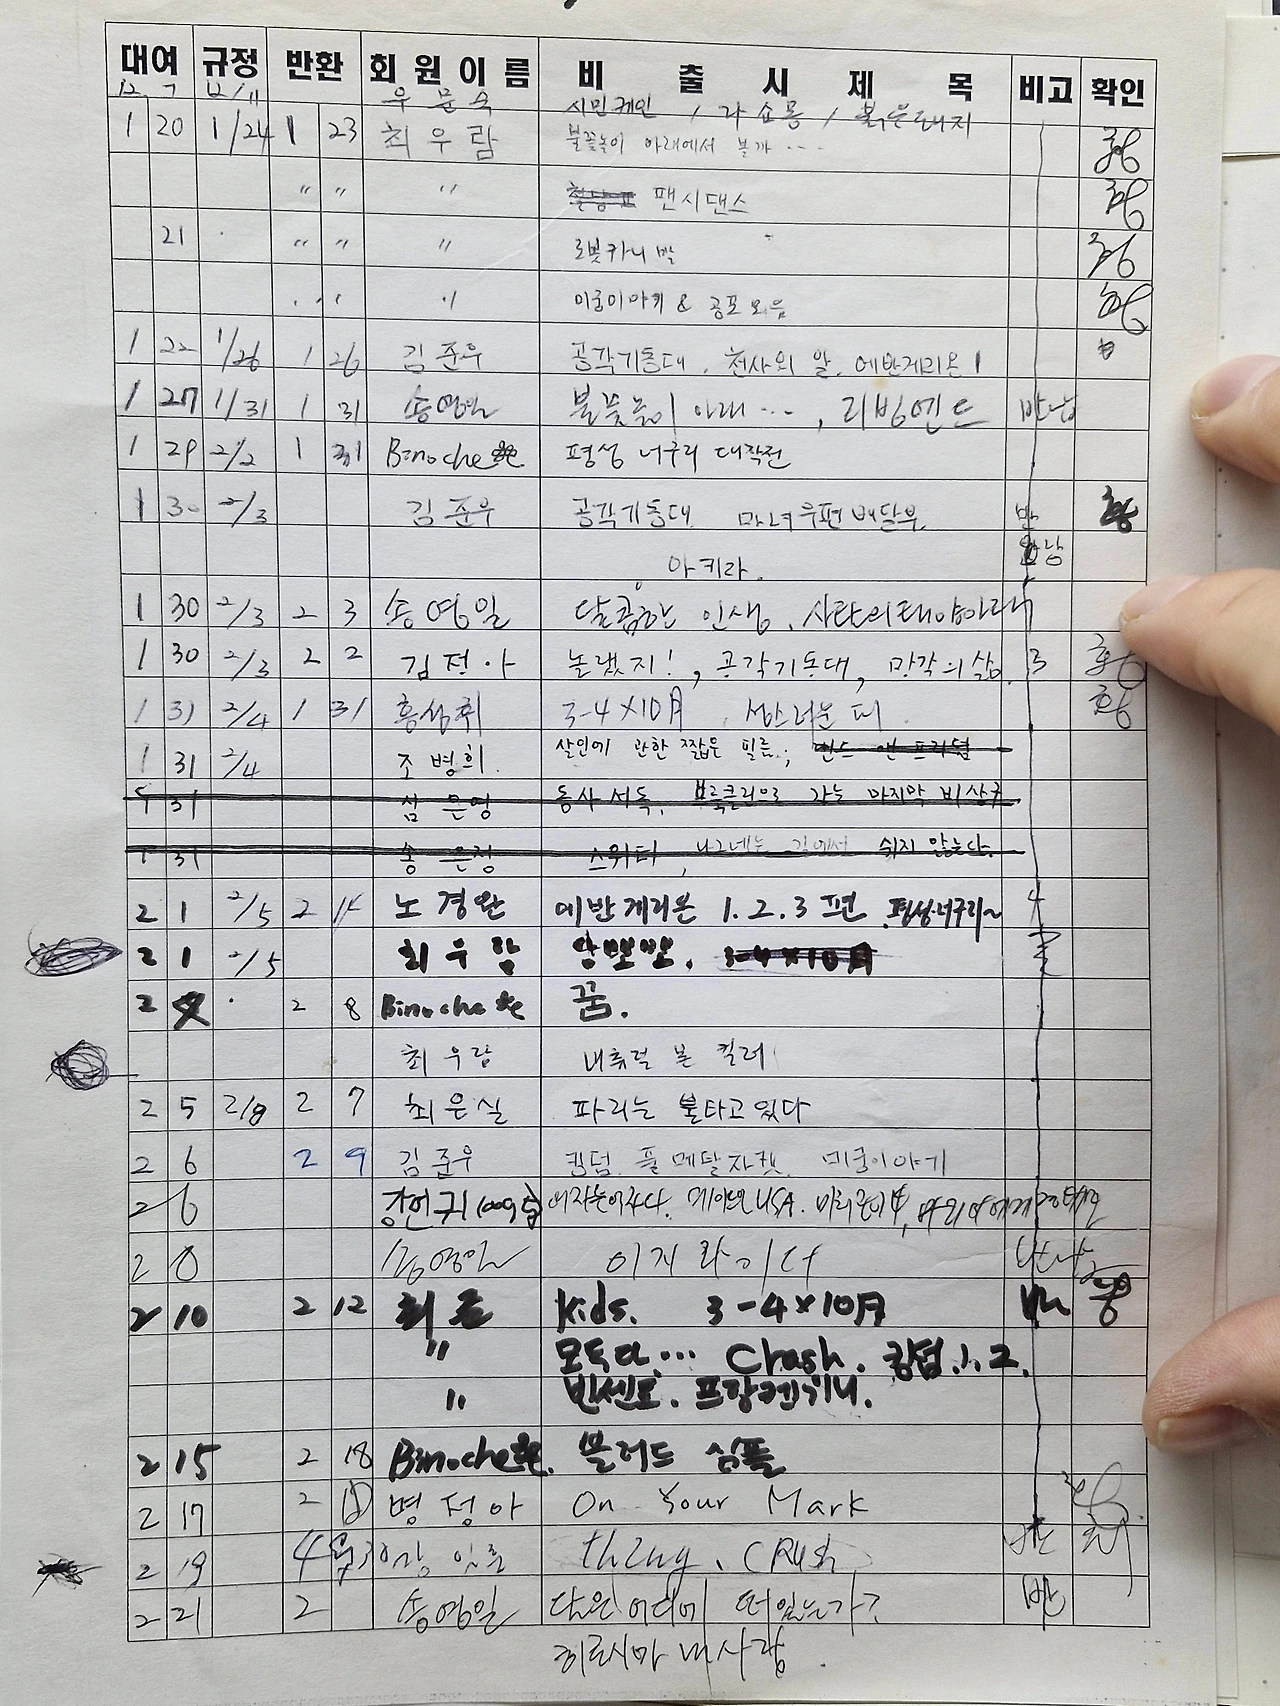 대여 규정 반환 회원이름 비출시제목 비고 확인
12 7 12/11 우문숙 시민케인 / 라쇼몽 / 붉은돼지
1 20 1/24 1 23 최우람 불꽃놀이 아래에서 볼까 ...
〃 〃 〃 팬시댄스
21 〃 〃 〃 로봇카니발
〃 〃 미궁이야기 & 공포모음
1 22 1/26 1 26 김준우 공각기동대, 천사의 알, 에반게리온 1
1 27 1/31 1 31 송영일 불꽃놀이 아래 ..., 리빙엔드 반납
1 29 2/2 1 31 Binoche 평성 너구리 대작전
1 30 2/3 김준우 공각기동대 마녀우편배달부 반
아키라. 반납
1 30 2/3 2 3 송영일 달콤한 인생, 사탄의 태양아래
1 30 2/3 2 2 김정아 놀랬지!, 공각기동대, 망각의 삶 3
1 31 2/4 1 31 홍성취 3-4×10月, 성스러운 피
1 31 2/4 조병희 살인에 관한 짧은 필름; 랜드 앤 프리덤
1 31 심은영 동사서독, 브룩클린으로 가는 마지막 비상구
1 31 송은정 스위티, 나그네는 길에서 쉬지 않는다.
2 1 2/5 2 14 노경완 에반게리온 1.2.3편. 평성너구리~ 4
2 1 2/5 최우람 3-4×10月
2 2 8 Binoche 꿈.
최우람 내츄럴 본 킬러
2 5 2/8 2 7 최은실 파리는 불타고 있다
2 6 2 9 김준우 킹덤. 풀메탈자켓. 미궁이야기
2 6 강언귀 여자는 여자다. 메이드인USA.
2 8 송영일 이지라이더 반납
2 10 2 12 최 Kids. 3-4×10月 반
〃 모두다... Crash. 킹덤.1.2.
〃 빈센트. 프랑켄위니.
2 15 2 18 Binoche. 블러드 심플
2 17 2 병정아 On Your Mark
2 19 4 CRush 반
2 21 2 송영일 당신 어디에 떠있는가? 반
히로시마 내사랑.